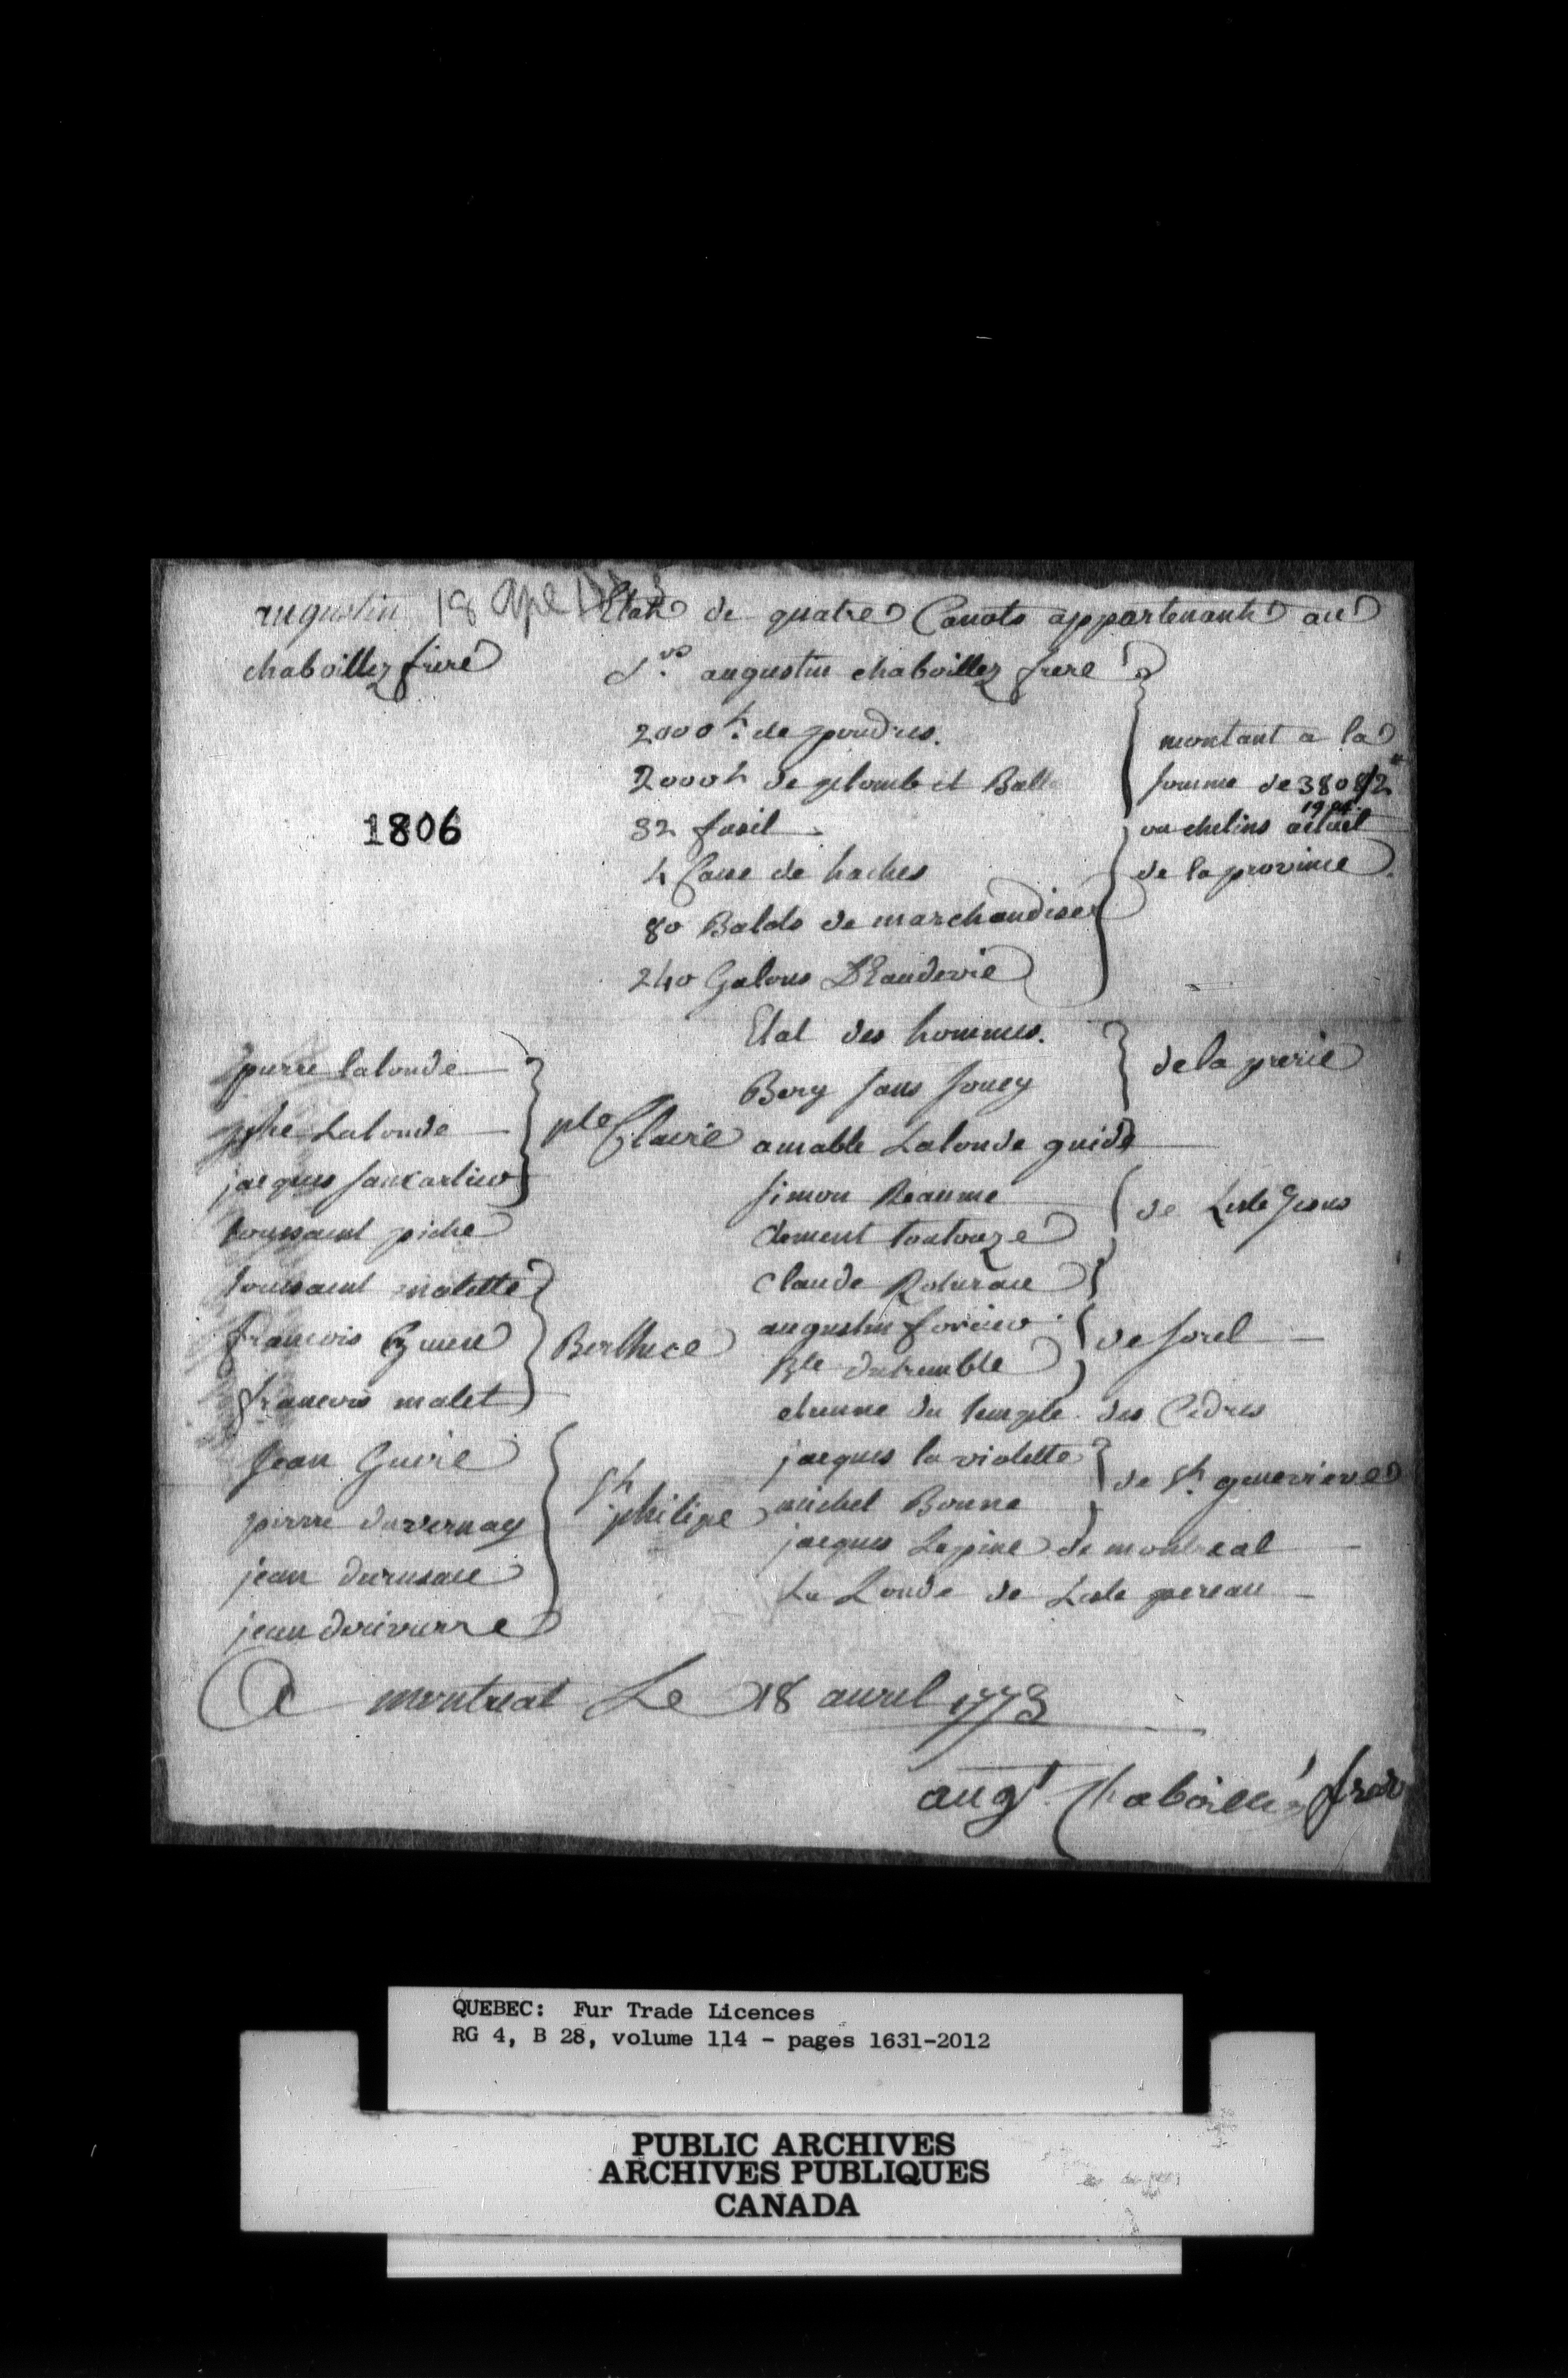 augustin 18 Apl 1773
chaboillez frere
Etat de quatre Canots appartenant au
Srs. augustin chaboillez frere
2000 h. de poudres.
2000 h de plomb et Balle
32 fusil
4 Casse de haches
80 Balots de marchandises
240 Galons D'Eaudevie
montant a la
somme de 38082
ou chelins actuel
de la province.
1806
Etat des hommes.
Bery sans soucy
de la prerie
amable Lalonde guide
simon Reaume
clement toutouze
de Lisle Jesus
claude
augustin
Bte dutremble
de sorel
etienne du temple des Cedres
jacques la violette
michel Bonne
de St. genevieve
jacques Lepine de montreal
La Londe de Lisle pereau
pierre lalonde
jphe Lalonde
jacques sancartier
pte Claire
toussaint piche
toussaint malette
francois
francois malet
Berthuce
Jean Guire
pierre duvernay
jean
jean
St philipe
A montreal Le 18 avril 1773
augt. Chaboillez frere
QUEBEC: Fur Trade Licences
RG 4, B 28, volume 114 - pages 1631-2012
PUBLIC ARCHIVES
ARCHIVES PUBLIQUES
CANADA